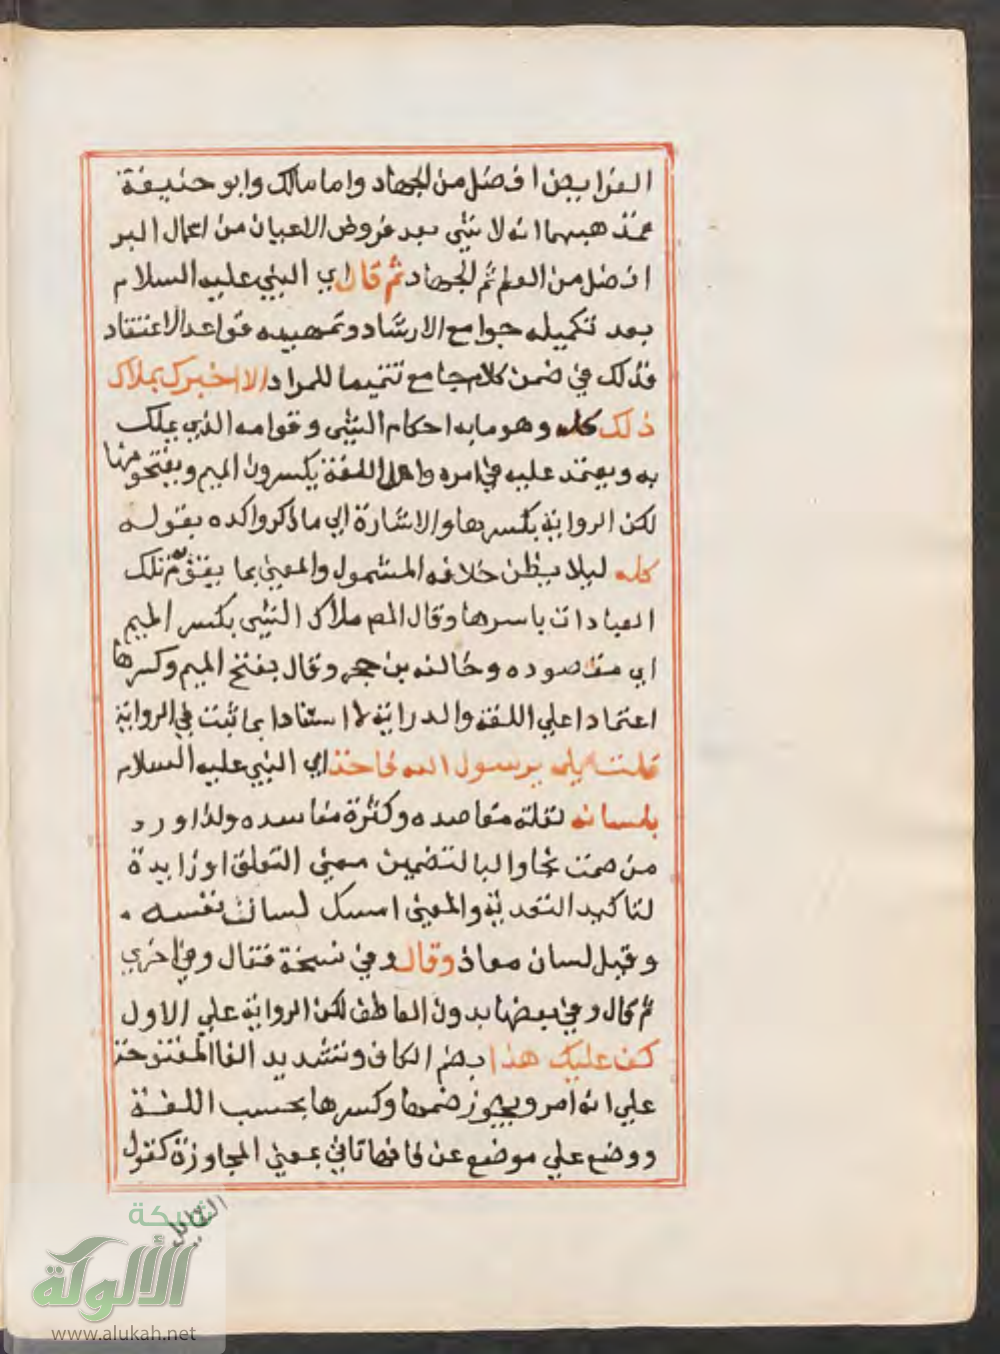 الفرايض افضل من الجهاد واما مالك وابو حنيفة
فمذهبهما انه لا شيء بعد فروض الاعيان من اعمال البر
افضل من العلم ثم الجهاد ثم قال اي النبي عليه السلام
بعد تكميله جوامع الارشاد وتمهيده قواعد الاعتقاد
فذلك في ضمن كلام جامع تتميما للمراد الا اخبرك بملاك
ذلك كله وهو ما به احكام الشي وقوامه الذي يملك
به ويعتمد عليه في امره واهل اللغة يكسرون الميم ويفتحونها
لكن الرواية بكسرها والاشارة الي ما ذكر واكده بقوله
كله ليلا يظن خلافه المشمول والمعني بما تلك
العبادات باسرها وقال المص ملاك الشي بكسر الميم
اي مقصوده وخالفه بن حجر وقال بفتح الميم وكسرها
اعتمادا علي اللغة والدراية لا استنادا بما ثبت في الرواية
قلت بلي يرسول الله فاخذ اي النبي عليه السلام
بلسانه لقلة مقاصده وكثرة مفاسده ولذا ورد
من صمت نجا والبا لتضمين معني التعلق او زايدة
لتاكيد التعدية والمعني امسك لسان نفسه
وقيل لسان معاذ وقال وفي نسخة فقال وفي اخري
ثم قال وفي بعضها بدون العاطف لكن الرواية علي الاول
كف عليك هذا بضم الكاف وتشديد الفا المفتوحة
علي انه امر ويجوز ضمها وكسرها بحسب اللغة
ووضع علي موضع عن فانها تاتي بمعني المجاوزة كقول
القايل
شبكة
الألوكة
www.alukah.net